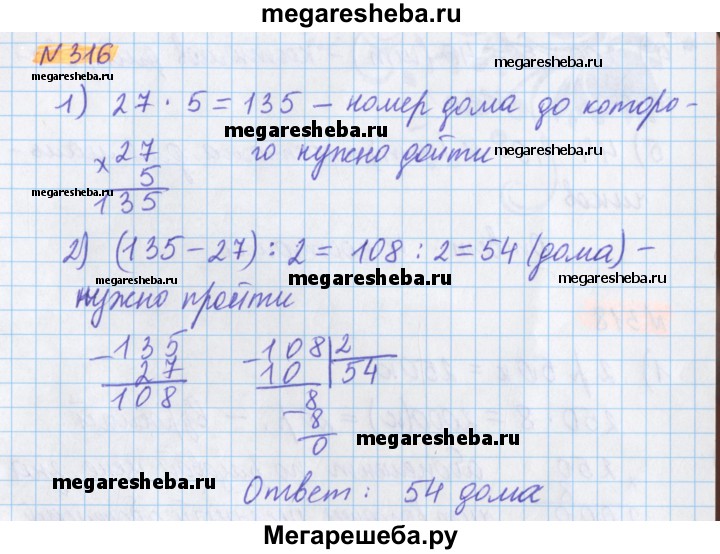 megaresheba.ru
N 316
megaresheba.ru
megaresheba.ru
1) 27 · 5 = 135 – номер дома до которо-
megaresheba.ru
го нужно дойти
megaresheba.ru
× 27
5
megaresheba.ru
135
2) (135 – 27) : 2 = 108 : 2 = 54 (дома) –
megaresheba.ru
megaresheba.ru
megaresheba.ru
нужно пройти
N 318
– 135
27
108
– 108 | 2
10 | 54
8
– 8
0
megaresheba.ru
megaresheba.ru
Ответ: 54 дома
megaresheba.ru
Мегарешеба.ру